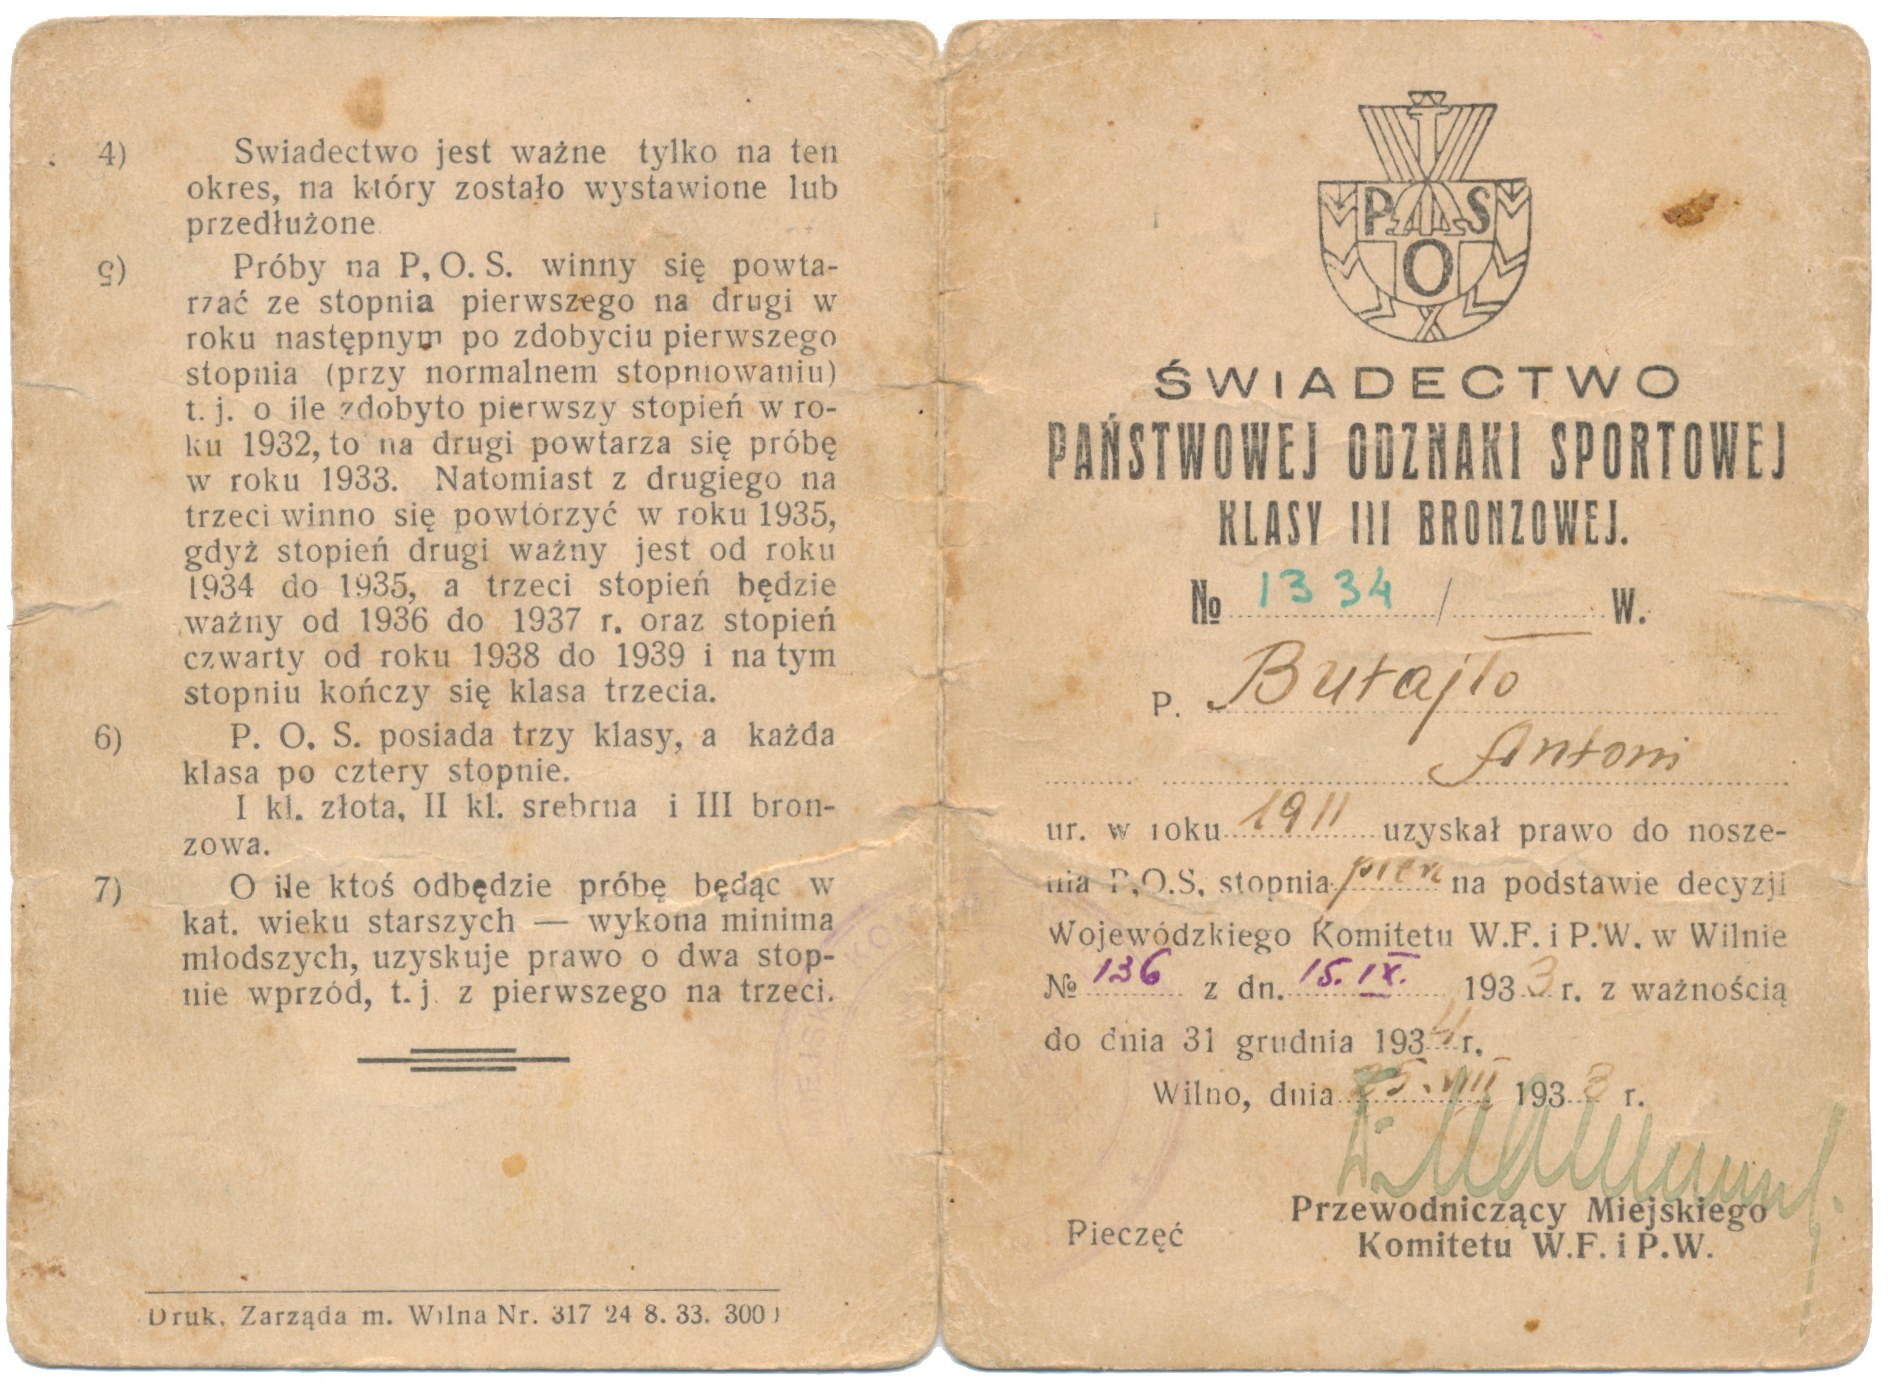 4) Swiadectwo jest ważne tylko na ten
okres, na który zostało wystawione lub
przedłużone
5) Próby na P. O. S. winny się powta-
rzać ze stopnia pierwszego na drugi w
roku następnym po zdobyciu pierwszego
stopnia (przy normalnem stopniowaniu)
t. j. o ile zdobyto pierwszy stopień w ro-
ku 1932, to na drugi powtarza się próbę
w roku 1933. Natomiast z drugiego na
trzeci winno się powtórzyć w roku 1935,
gdyż stopień drugi ważny jest od roku
1934 do 1935, a trzeci stopień będzie
ważny od 1936 do 1937 r. oraz stopień
czwarty od roku 1938 do 1939 i na tym
stopniu kończy się klasa trzecia.
6) P. O. S. posiada trzy klasy, a każda
klasa po cztery stopnie.
I kl. złota, II kl. srebrna i III bron-
zowa.
7) O ile ktoś odbędzie próbę będąc w
kat. wieku starszych — wykona minima
młodszych, uzyskuje prawo o dwa stop-
nie wprzód, t. j. z pierwszego na trzeci.
Druk. Zarząda m. Wilna Nr. 317 24 8. 33. 300
P S
O
ŚWIADECTWO
PAŃSTWOWEJ ODZNAKI SPORTOWEJ
KLASY III BRONZOWEJ.
№ 1334 / W.
P. Butajło
Antoni
ur. w roku 1911 uzyskał prawo do nosze-
nia P.O.S. stopnia pier na podstawie decyzji
Wojewódzkiego Komitetu W.F. i P.W. w Wilnie
№ 136 z dn. 15.IX. 1933 r. z ważnością
do dnia 31 grudnia 1934 r.
Wilno, dnia 1933 r.
Przewodniczący Miejskiego
Pieczęć
Komitetu W.F. i P.W.